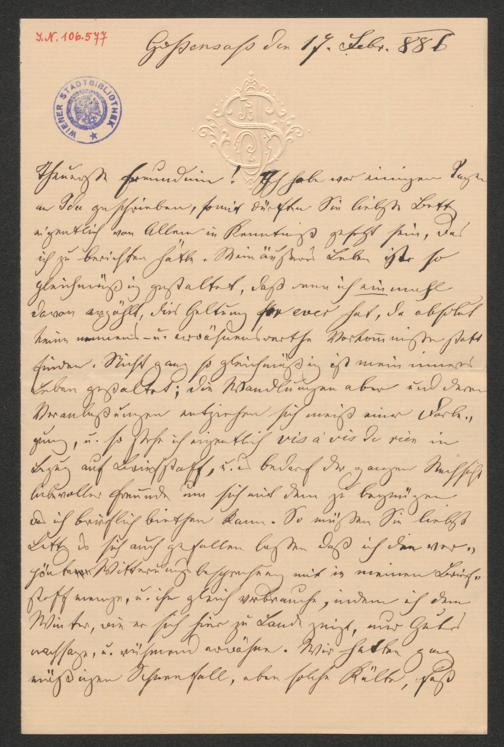 J.N. 106.577
Gossensaß den 17. Febr. 886
WIENER STADTBIBLIOTHEK
Theuerste Freundinn! Ich habe vor einigen Tagen
an Ida geschrieben, somit dürften Sie liebste Betti
eigentlich von Allem in Kenntniß gesetzt sein, das
ich zu berichten hätte. Mein äußeres Leben ist so
gleichmäßig gestaltet, daß wenn ich einmahl
davon erzählt, dies Geltung for ever hat, da absolut
keine nennens- u. erwähnenswerthe Vorkomnisse statt
finden. Nicht ganz so gleichmäßig ist mein inneres
Leben gestaltet; die Wandlungen aber und deren
Veranlaßungen entziehen sich meist einer Darle-
gung, u. so stehe ich eigentlich vis à vis de rien in
Bezug auf Briefstoff, u. es bedarf der ganzen Nachsicht
liebevoller Freunde um sich mit dem zu begnügen
was ich brieflich biethen kann. So müssen Sie liebste
Betti es sich auch gefallen lassen daß ich die ver-
pönten Witterungsbesprechung mit in meinen Brief-
stoff menge, u. ihn gleich verbrauche, indem ich dem
Winter, wie er sich hier zu Lande zeigt, nur Gutes
nachsage, u. rühmend erwähne. Wir hatten ganz
mäßigen Schneefall, eben solche Kälte, fast